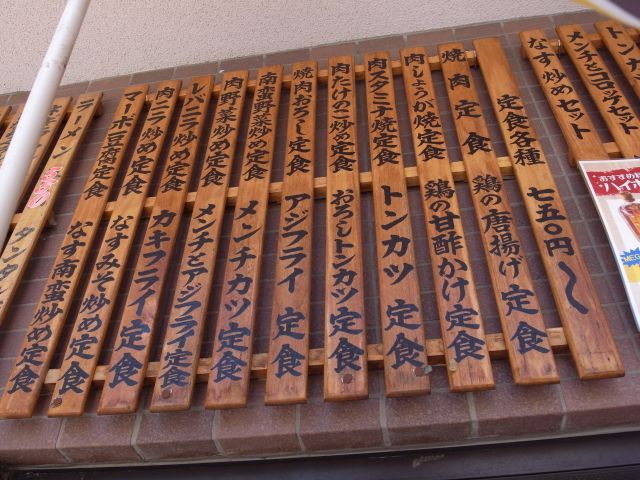 トン
メンチとコロッケセット
なす炒めセット
定食各種 七五〇円〜
焼肉定食 鶏の唐揚げ定食
肉しょうが焼定食 鶏の甘酢かけ定食
肉スタミナ焼定食 トンカツ定食
肉たけのこ炒め定食 おろしトンカツ定食
焼肉おろし定食 アジフライ定食
南蛮野菜炒め定食 メンチカツ定食
肉野菜炒め定食 メンチとアジフライ定食
レバニラ炒め定食 カキフライ定食
肉ニラ炒め定食 なすみそ炒め定食
マーボ豆腐定食 なす南蛮炒め定食
ラーメン
タンタン
おすすめ
ハイ
MEG